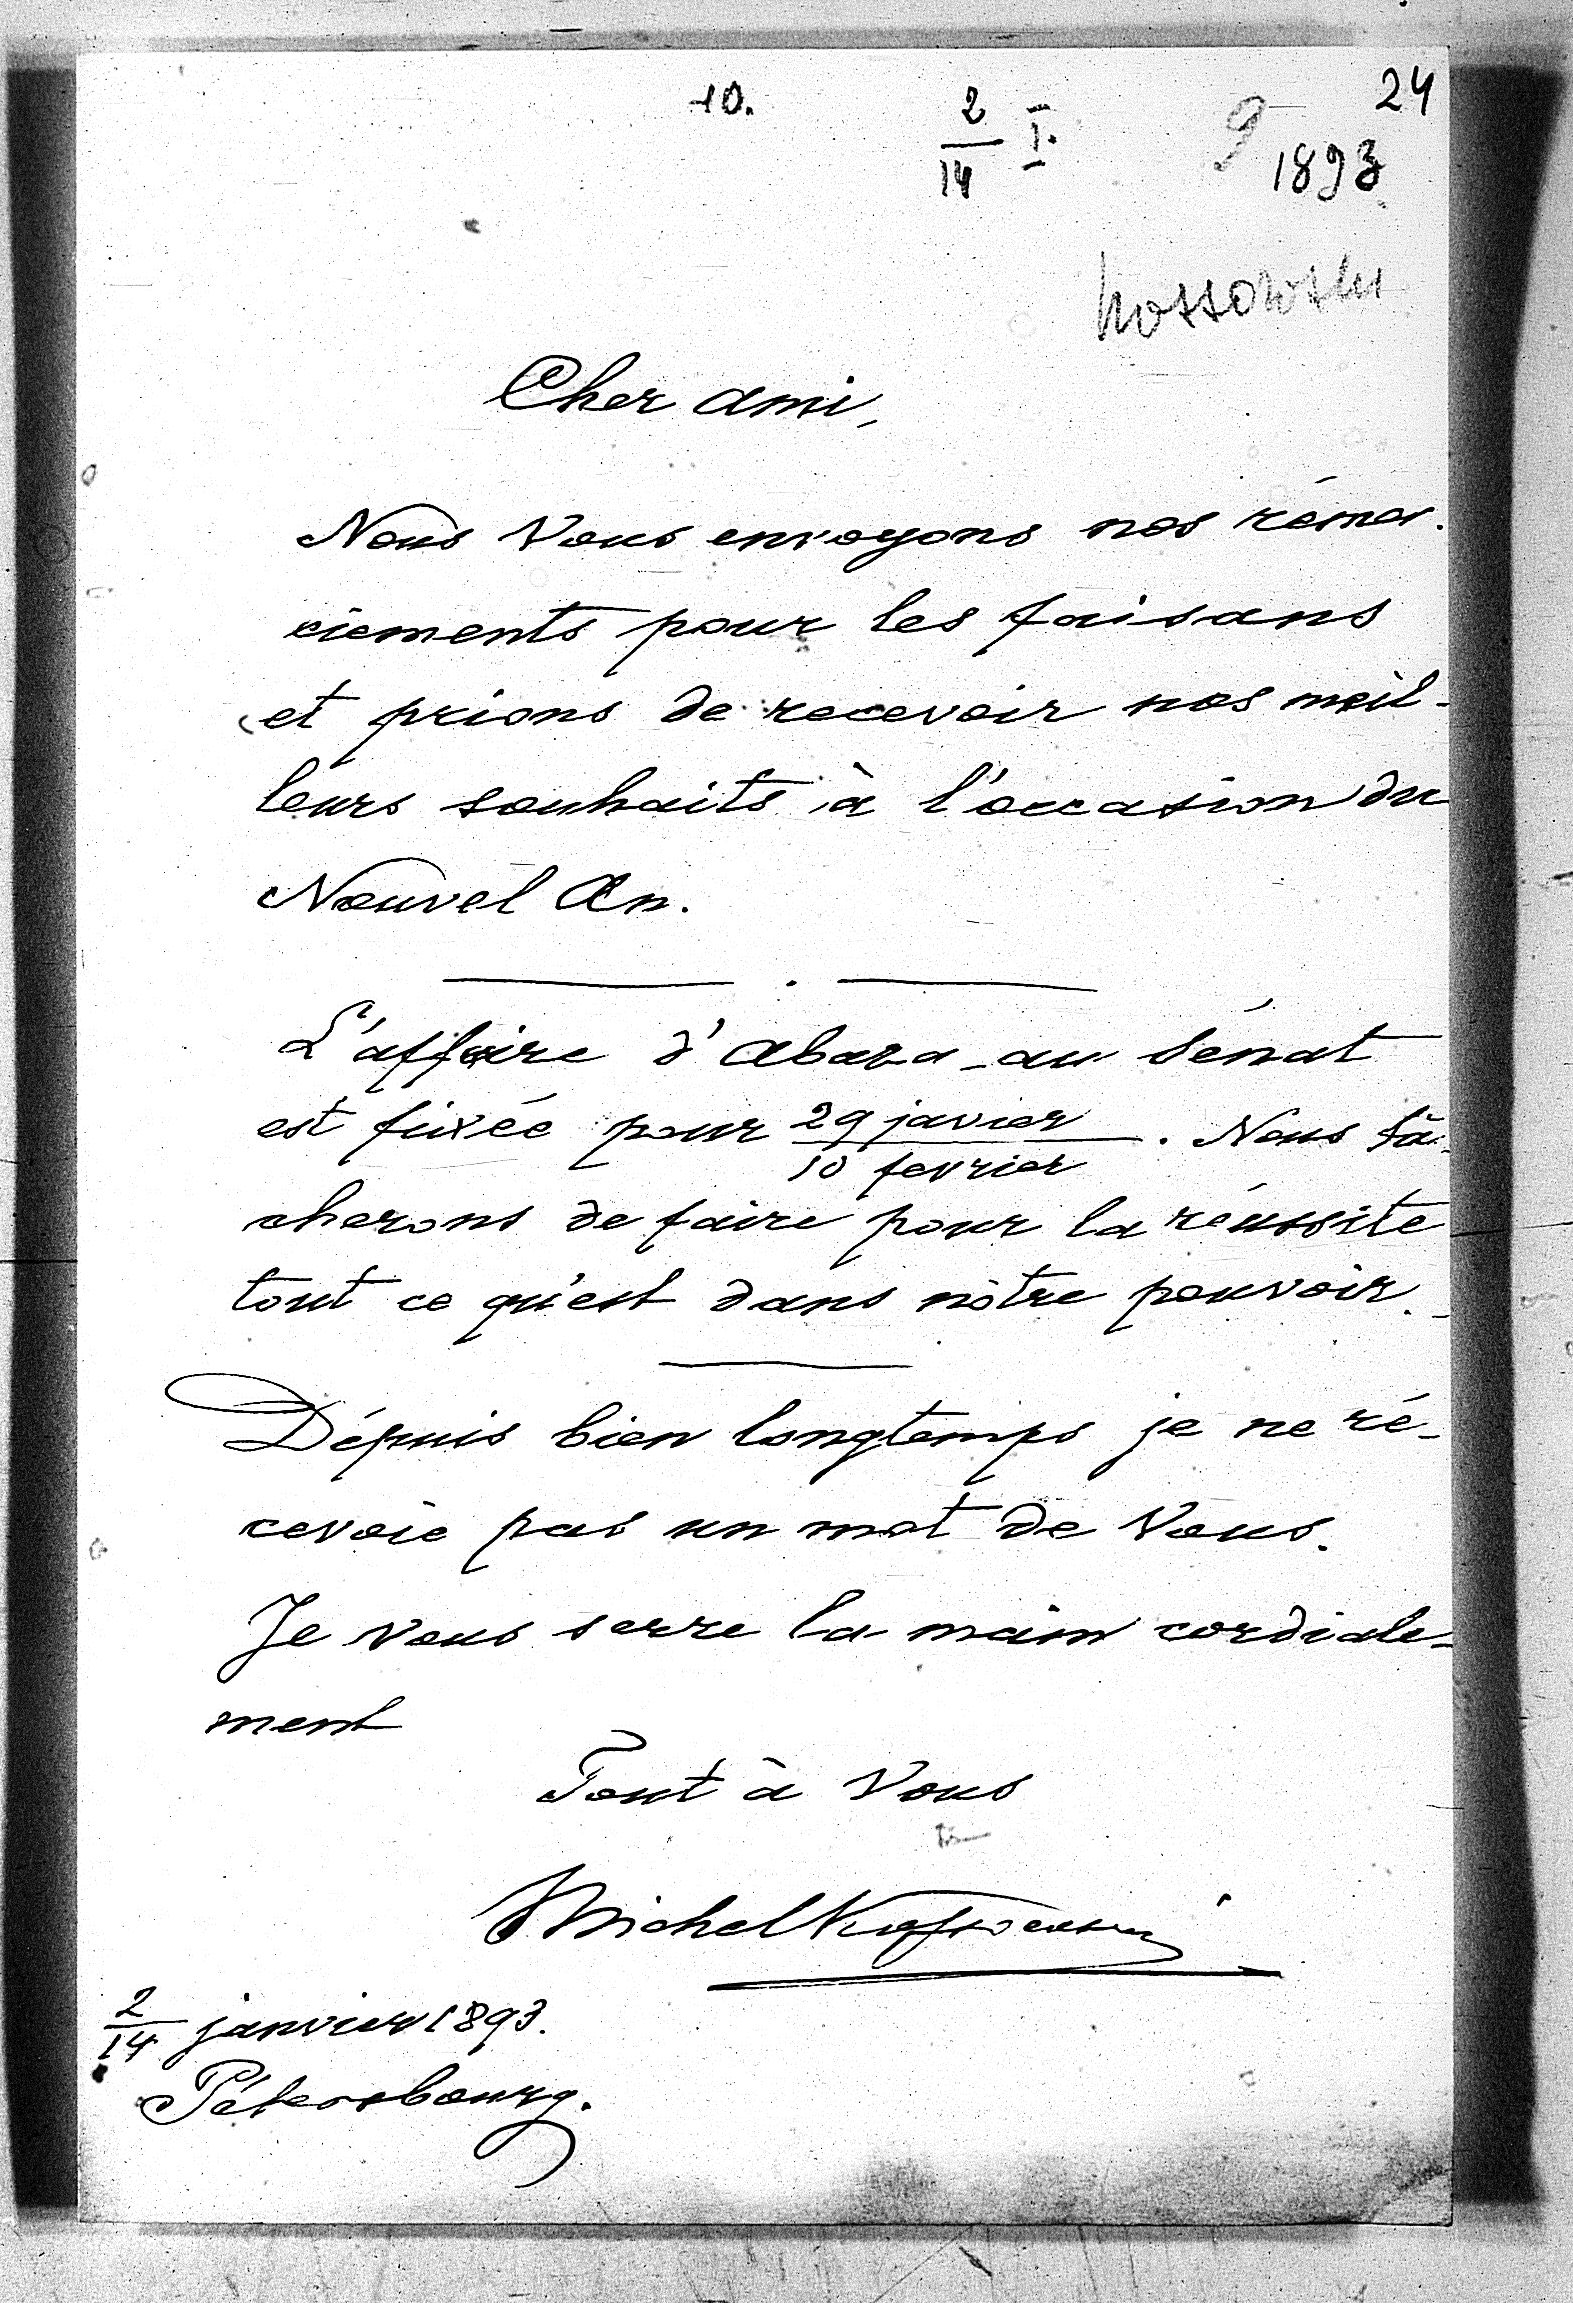 10.
2/14 I.
9
24
1893
Kossowski
Cher ami,
Nous Vous envoyons nos rémer-
ciements pour les faisans
et prions de recevoir nos meil-
leurs souhaits à l'occasion du
Nouvel An.
L'affaire d'Abaza au Sénat
est fixée pour 29 javier / 10 fevrier. Nous tâ-
cherons de faire pour la réussite
tout ce qu'est dans nôtre pouvoir.
Dépuis bien longtemps je ne ré-
cevoie pas un mot de Vous.
Je vous serre la main cordiale-
ment
Tout à Vous
Michel
2/14 janvier 1893.
Pétersbourg.